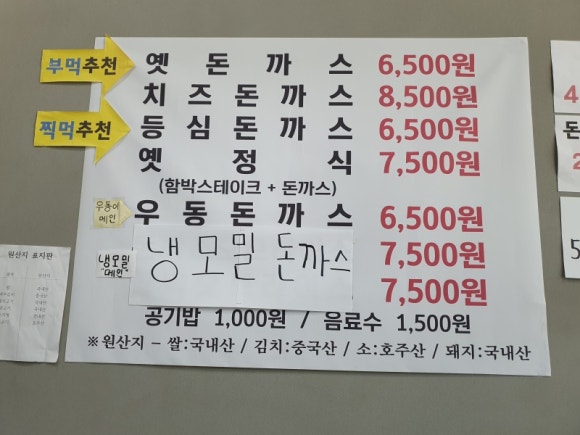 부먹추천
옛 돈 까 스 6,500원
치즈돈까스 8,500원
찍먹추천
등심돈까스 6,500원
옛 정 식 7,500원
(함박스테이크 + 돈까스)
우동이
메인
우동돈까스 6,500원
냉모밀
"메인"
냉모밀 돈까스 7,500원
7,500원
공기밥 1,000원 / 음료수 1,500원
※원산지 – 쌀:국내산 / 김치:중국산 / 소:호주산 / 돼지:국내산
원산지 표지판
4
돈
2
5